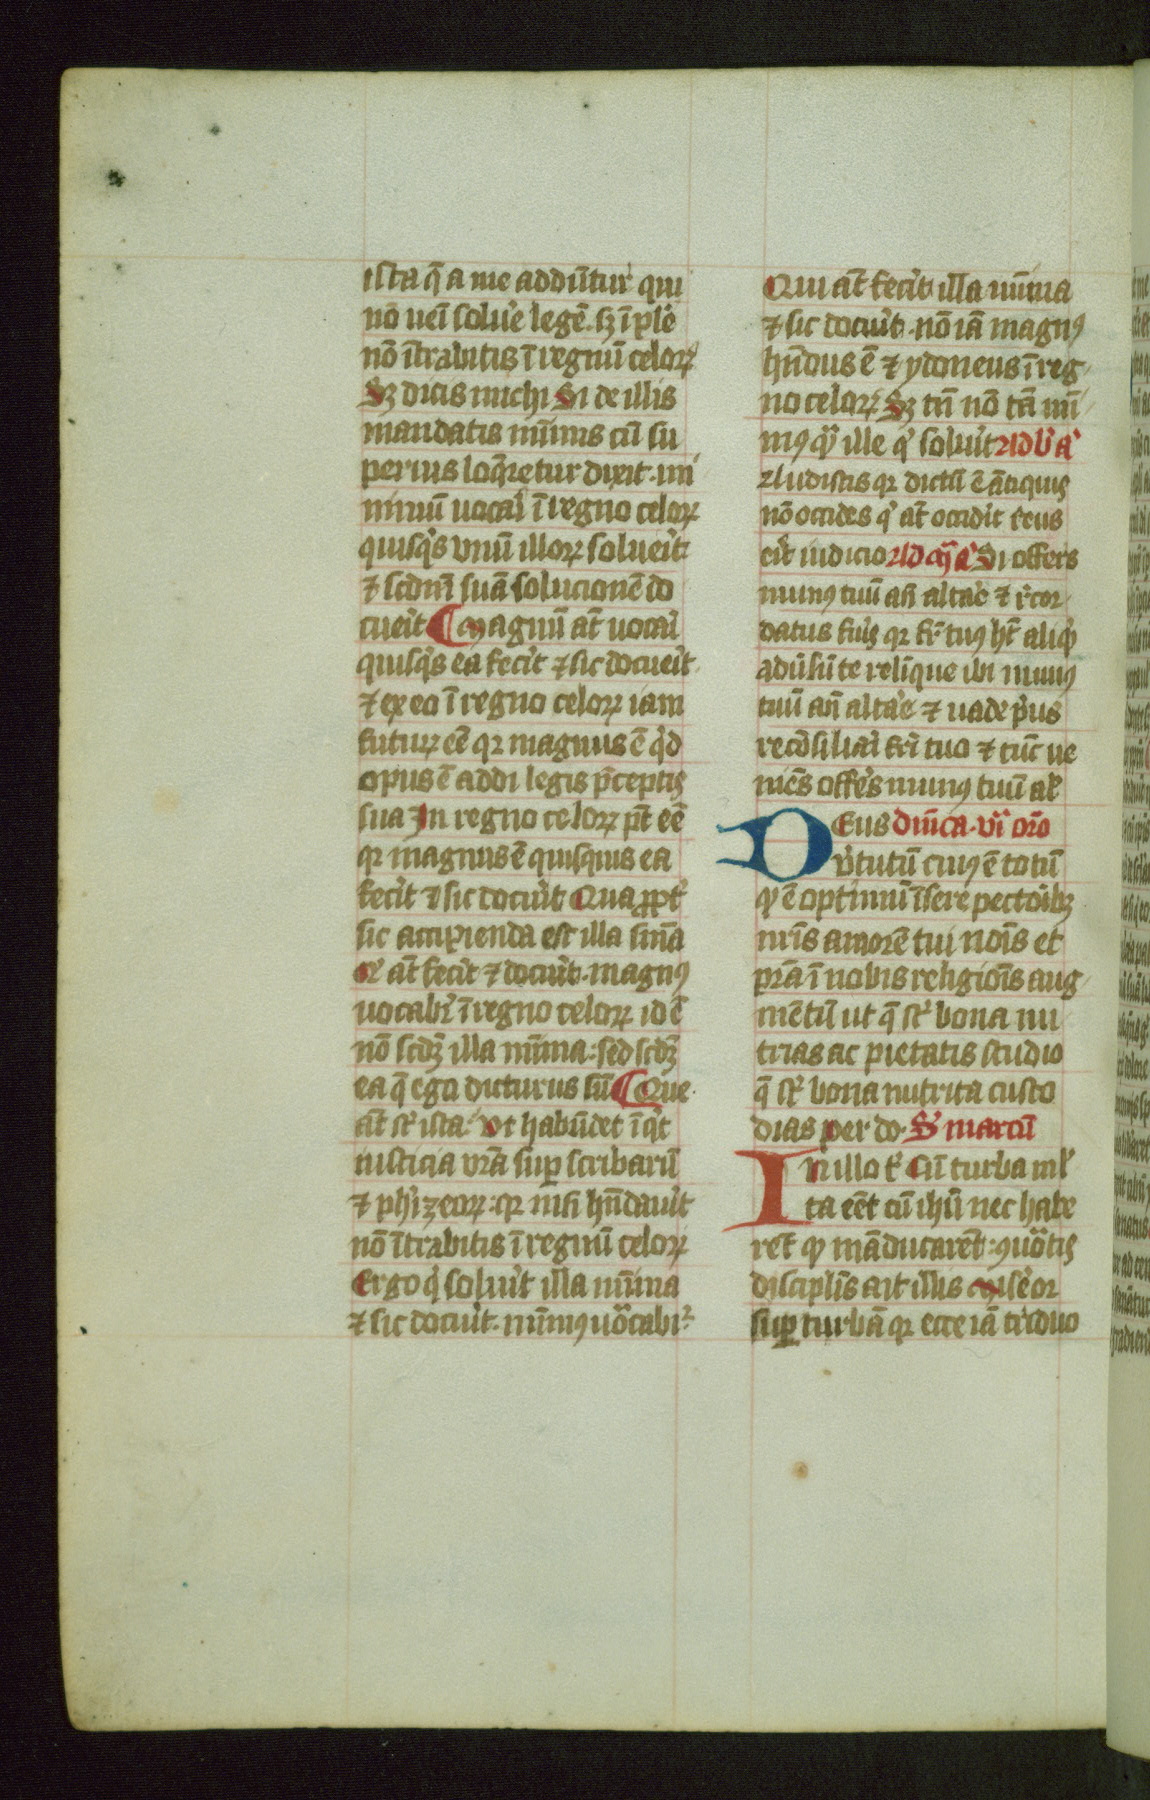 ista q̄ a me addūtur qui
nō uēī soluꝰe legē. sꝫ īplē
nō ītrabitis ī regnū celoꝝ
Sꝫ dicis michi Si de illis
mandatis mīmis cū su
perius loq̄retur dixit. mi
nimū uocaƀi ī regno celoꝝ
quisq̓s vnū illoꝝ solueꝰit
⁊ scdm̄ suā solucionē do
cueꝰit ¶ Magnū aūt uocaƀi
quisq̓s ea feceꝰit ⁊ sic docueꝰit.
⁊ ex eo ī regno celoꝝ iam
futuꝝ eē qꝛ magnus ē q̓d
opus ē addi legis p̄ceptis
sua In regno celoꝝ pt̄ eē
qꝛ magnus ē quisquis ea
feceꝰit ⁊ sic docuꝰit Quapp̱t̓
sic accipienda est illa sīnīa
Q̓ aūt feceꝰit ⁊ docuꝰit. magnꝰ
uocabꝭ ī regno celoꝝ id ē
nō scdꝫ illa mīma: sed scdꝫ
ea q̄ ego dicturus sū ¶ Que
aūt st̄ ista. Vt habūdet īq̓t
iusticia vr̄a suꝑ scribarū
⁊ phīzeoꝝ: qꝛ nisi hūdauꝰit
nō ītrabitis ī regnū celoꝝ
Ergo q̓ soluꝰit illa mīma
⁊ sic docuꝰit. mīmꝰ uocabiꝛ
Qui aūt feceꝰit illa mīma
⁊ sic docuꝰit. nō iā magnꝰ
hn̄dus ē ⁊ ydoneus ī reg
no celoꝝ Sꝫ tn̄ nō tā mī
mꝰ qꝫ ille q̓ soluꝰit Ad b̓ a͛
Audistis qꝛ dictū ē ātiquis
nō occides q̓ aūt occidꝰit reus
erꝰit iudicio Ad m̄ a͛ Si offers
munꝰ tuū an̄ altaꝰe ⁊ r̓cor
datus fuꝰis qꝛ fr̄ tuꝰ ht̄ aliq̓d
adūsū te reliīque ibi munꝰ
tuū an̄ altaꝰe ⁊ uade pꝰus
recōsiliaꝰi fr̄i tuo ⁊ tūc ue
niēs offeꝰs munꝰ tuū al̓
Deus dn̄ica. vi. or̄o
vꝰtutū cuiꝰ ē totū
qꝫ ē optimū īsere pectoībꝫ
nr̄is amorē tui nōīs et
pr̄a ī nobis religiōīs aug
mētū ut q̄ st̄ bona nu
trias ac pietatis studio
q̄ st̄ bona nutrita custo
dias per. do. S̓ marcū
In illo t̓ Cū turba ml̓
ta eēt cū ihū nec habe
rēt qꝫ māducarēt: ꝯuōtis
discipl̓is ait illis Miseꝰor
suꝑ turbā qꝛ ecce iā triduo